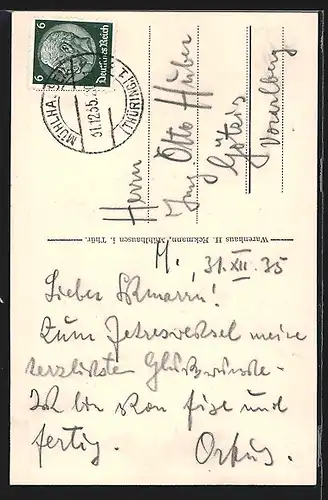 6 Deutsches Reich 6
MÜHLHAUSEN (THÜRING) 1
31.12.35.
Herrn
Ing. Otto Huber
Götzis
Vorarlberg
Warenhaus H. Eckmann, Mühlhausen i. Thür.
M., 31. XII. 35
Lieber
Zum Jahreswechsel meine
herzlichsten Glückwünsche.
Ich bin schon fix und
fertig. Orkus.